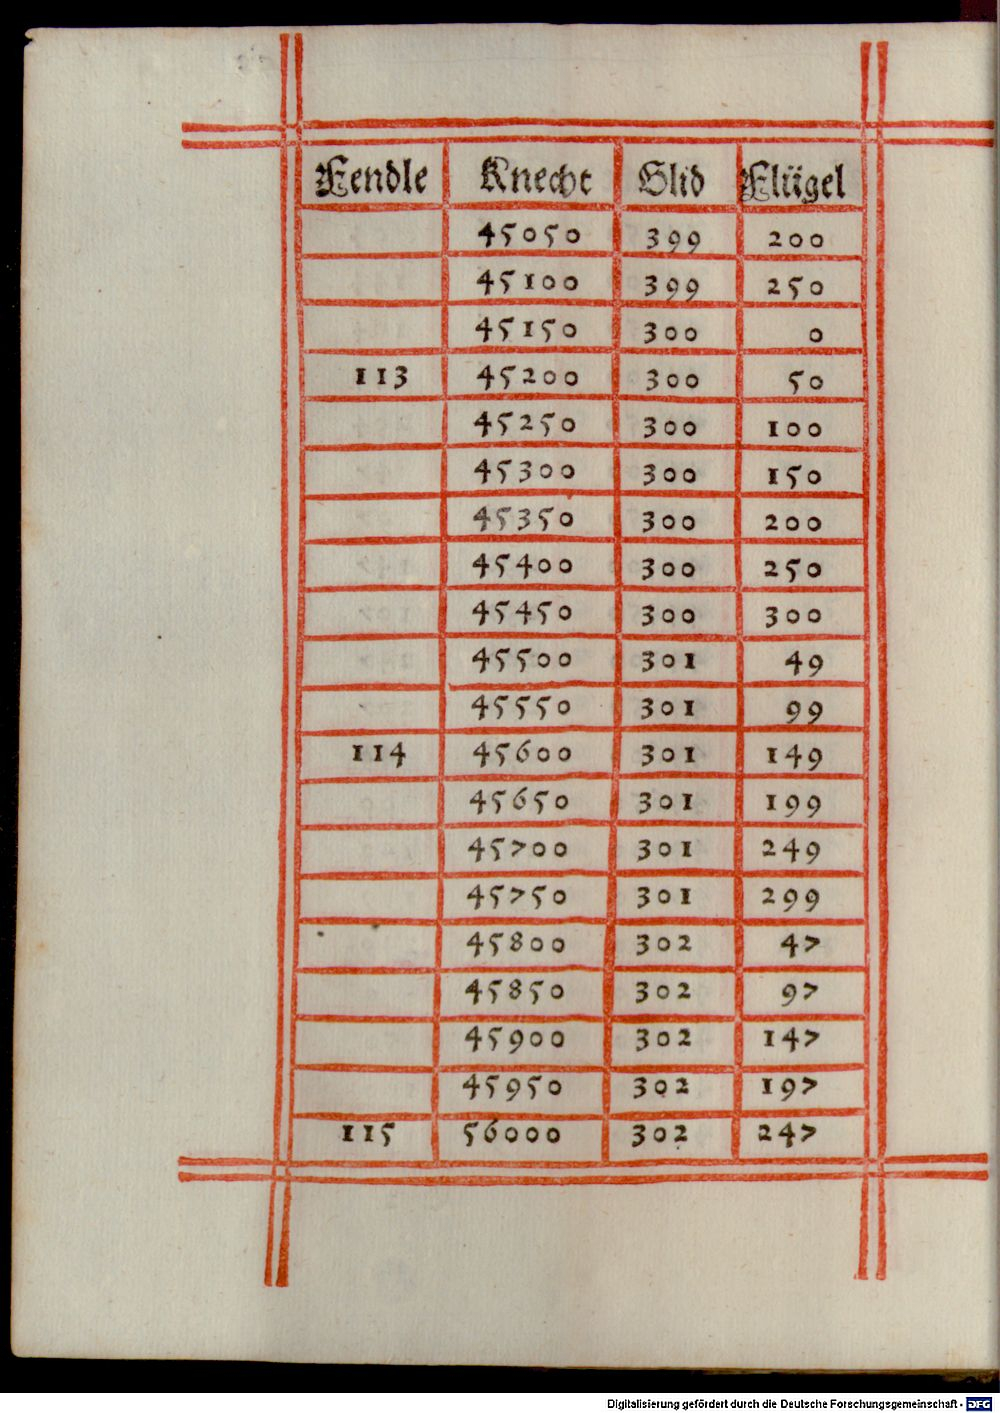 Fendle Knecht Glid Flügel
45050 399 200
45100 399 250
45150 300 0
113 45200 300 50
45250 300 100
45300 300 150
45350 300 200
45400 300 250
45450 300 300
45500 301 49
45550 301 99
114 45600 301 149
45650 301 199
45700 301 249
45750 301 299
45800 302 47
45850 302 97
45900 302 147
45950 302 197
115 56000 302 247
Digitalisierung gefördert durch die Deutsche Forschungsgemeinschaft - DFG